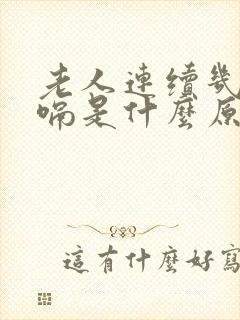 老人連續幾
喎是什麼原
這有什麼好寫